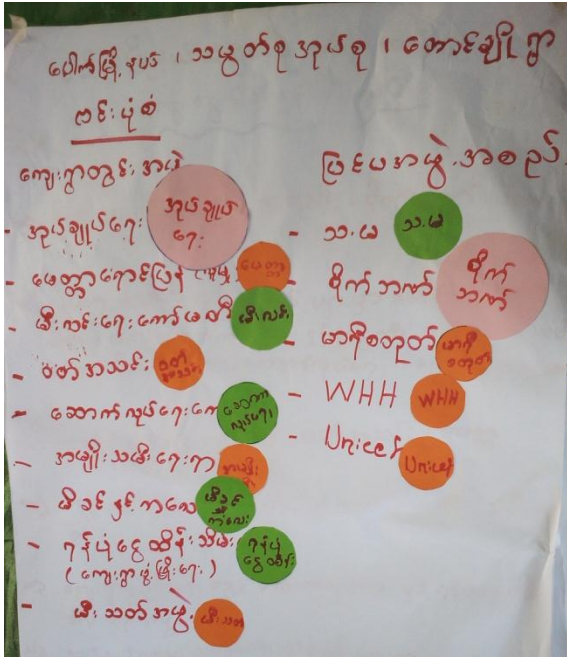 ပေါက်မြို့နယ်၊ သမွတ်စုအုပ်စု၊ တောင်ချို့ရွာ
ဇင်းပုံစံ
ကျေးရွာတွင်းအဖွဲ့
- အုပ်ချုပ်ရေး အုပ်ချုပ်ရေး
- မေတ္တာရောင်ပြန် မေတ္တာ
- မီးလင်းရေးကော်မတီ မီးလင်း
- ဝတ်အသင်း ဝတ်အသင်း
- ဆောက်လုပ်ရေးကော ဆောက်လုပ်ရေး
- အမျိုးသမီးရေးရာ အမျိုး
- မိခင်နှင့်ကလေး မိခင်ကလေး
- ရန်ပုံငွေထိန်းသိမ်း ရန်ပုံငွေထိန်း
(ကျေးရွာဖွံ့ဖြိုးရေး)
- မီးသတ်အဖွဲ့ မီးသတ်
ပြင်ပအဖွဲ့အစည်း
- သ.မ သ.မ
- စိုက်ဘဏ် စိုက်ဘဏ်
- မာကီစတုတ် မာကီစတုတ်
- WHH WHH
- Unicef Unicef